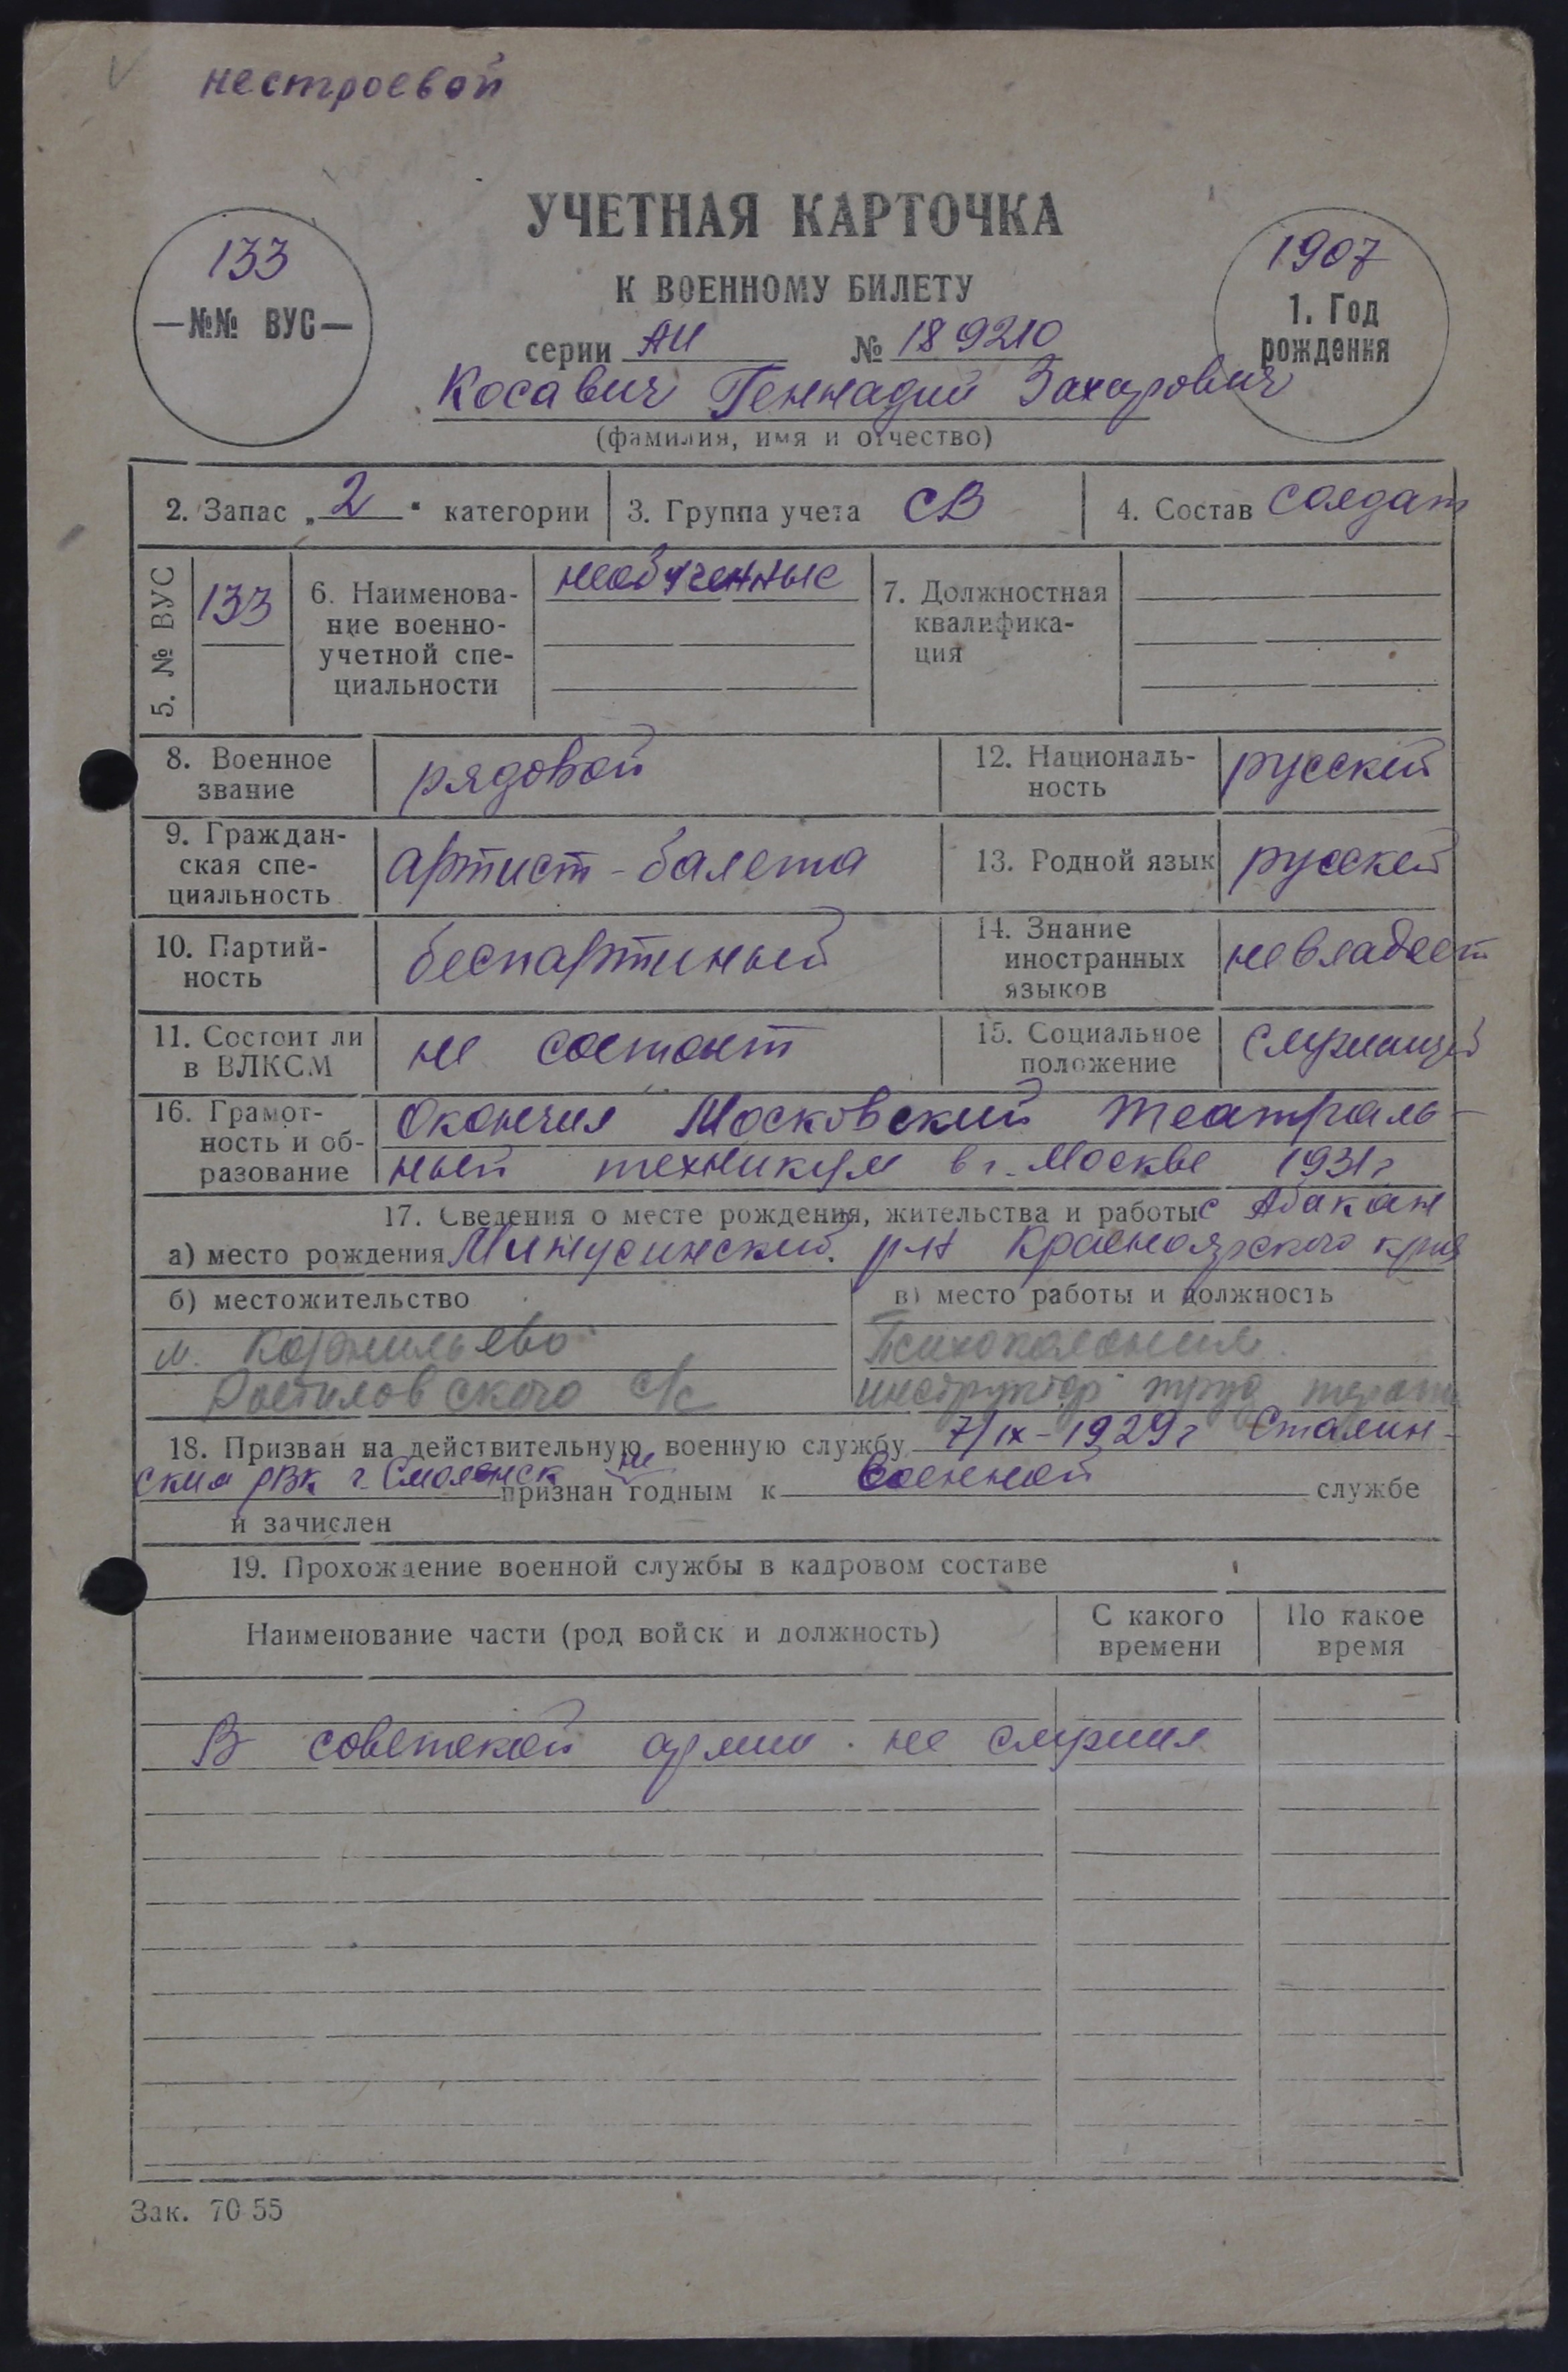 нестроевой
УЧЕТНАЯ КАРТОЧКА
К ВОЕННОМУ БИЛЕТУ
133
—№№ ВУС—
1907
1. Год
рождения
серии АИ № 189210
Косавич Геннадий Захарович
(фамилия, имя и отчество)
2. Запас „2" категории
3. Группа учета СВ
4. Состав солдат
5. № ВУС
133
6. Наименова-
ние военно-
учетной спе-
циальности
необученные
7. Должностная
квалифика-
ция
8. Военное
звание
рядовой
12. Националь-
ность
русский
9. Граждан-
ская спе-
циальность
артист-балета
13. Родной язык
русский
10. Партий-
ность
беспартиный
14. Знание
иностранных
языков
не владеет
11. Состоит ли
в ВЛКСМ
не состоит
15. Социальное
положение
служащий
16. Грамот-
ность и об-
разование
Окончил Московский театраль-
ный техникум в г. Москве 1931 г
17. Сведения о месте рождения, жительства и работы с Абакан
а) место рождения Минусинский р-н Красноярского края
б) местожительство
в) место работы и должность
м. Корнильево
Психоколония
Ростиловского с/с
инструктор труд терапи
18. Призван на действительную военную службу 7/IX-1929 г Сталин-
ским РВК г. Смоленск не признан годным к военной службе
и зачислен
19. Прохождение военной службы в кадровом составе
Наименование части (род войск и должность)
С какого
времени
По какое
время
В советской армии не служил
Зак. 70-55